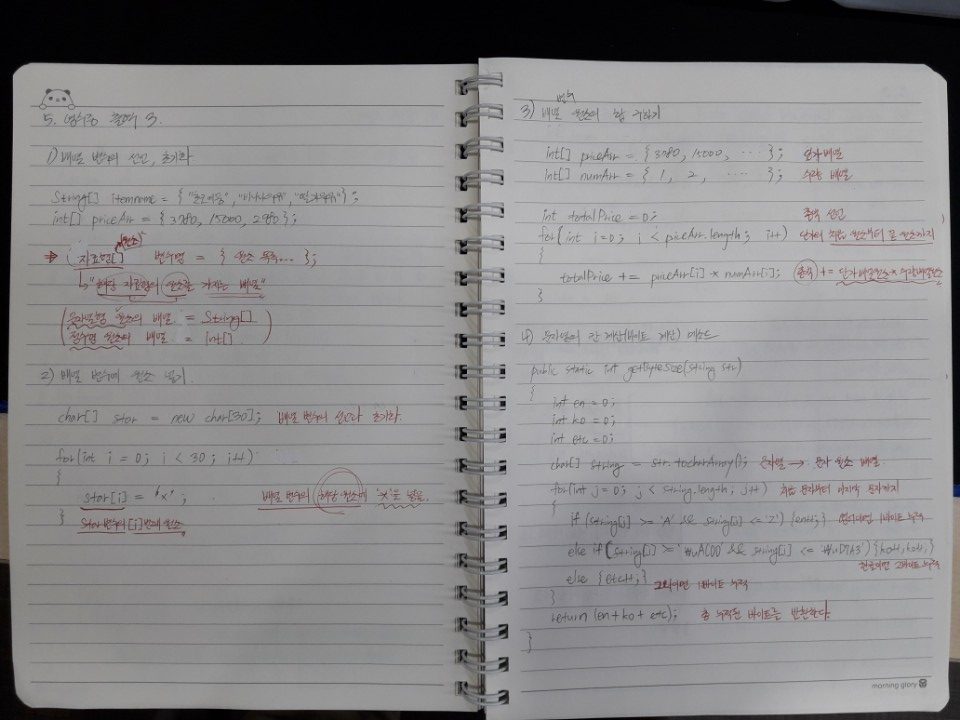 5. 영수증 출력 3.
1) 배열 변수의 선언, 초기화
String[] itemname = { "초코아몽", "바나나우유", "딸기우유" };
int[] priceArr = { 3780, 15000, 2980 };
(원소)
⇒ 자료형[] 변수명 = { 원소 목록... };
↳ "해당 자료형의 원소를 가지는 배열"
문자열형 원소의 배열 = String[]
정수형 원소의 배열 = int[]
2) 배열 변수에 원소 넣기
char[] star = new char[30]; 배열 변수의 선언과 초기화.
for(int i = 0; i < 30; i++)
{
star[i] = '*'; 배열 변수의 해당 원소에 '*'을 넣음.
}
star변수의 [i]번째 원소
변수
3) 배열 원소의 합 구하기
int[] priceArr = { 3780, 15000, ... }; 단가 배열
int[] numArr = { 1, 2, ... }; 수량 배열
int totalPrice = 0; 총액 선언
for( int i=0; i < priceArr.length; i++) 단가의 처음 원소부터 끝 원소까지
{
totalPrice += priceArr[i] * numArr[i]; 총액 += 단가배열원소 * 수량배열원소
}
4) 문자열의 칸 계산(바이트 계산) 메소드
public static int getByteSize(String str)
{
int en = 0;
int ko = 0;
int etc = 0;
char[] string = str.tocharArray(); 문자열 → 문자 원소 배열.
for(int j=0; j < string.length; j++) 처음 문자부터 마지막 문자까지
{
if (string[j] >= 'A' && string[j] <= 'Z') {en++;} 영어이면 1바이트 누적
else if (string[j] >= '\uAC00' && string[j] <= '\uD7A3') {ko++; ko++;}
한글이면 2바이트 누적
else {etc++;} 그외이면 1바이트 누적
}
return (en + ko + etc); 총 누적된 바이트를 반환한다.
}
morning glory